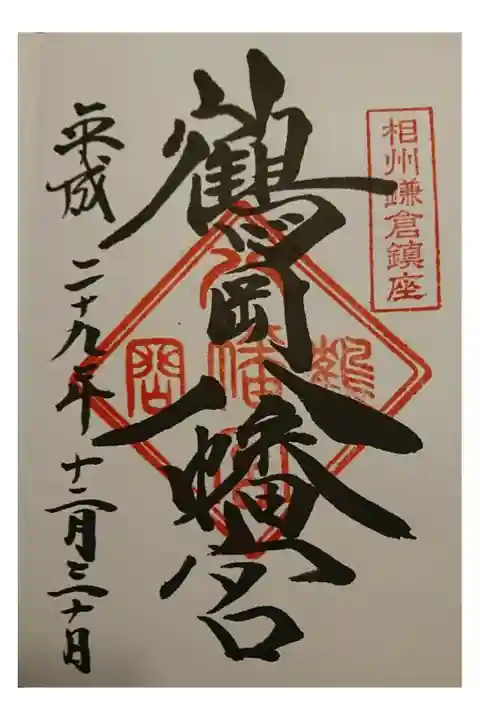 相州鎌倉鎮座
鶴岡八幡宮
鶴
八幡宮
岡
平成二十九年十二月三十日